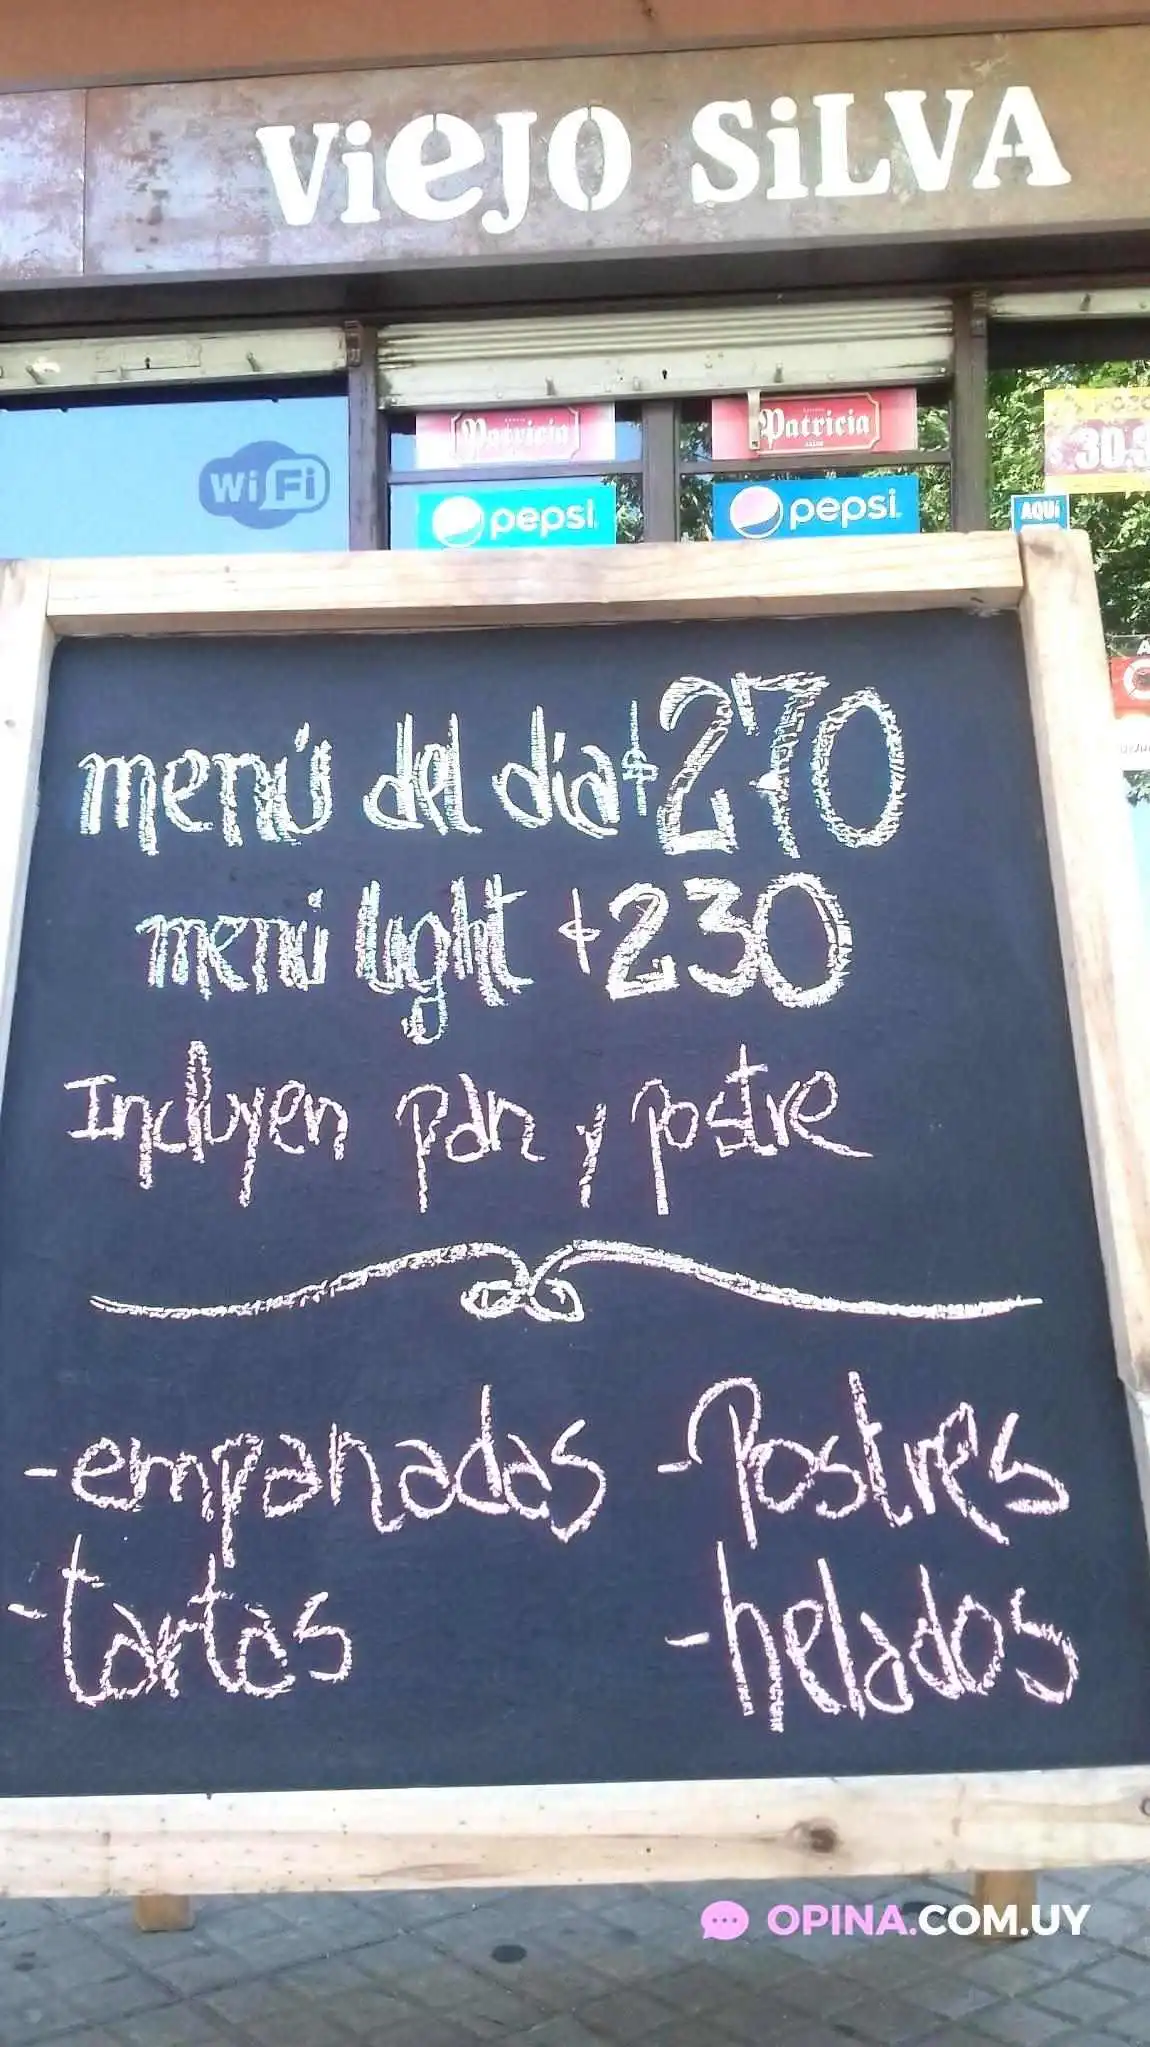 ViEJO SiLVA
Patricia
Patricia
WiFi
pepsi
pepsi
AQUÍ
menú del día $270
menú light $230
Incluyen pan y postre
-empanadas
-tartas
-Postres
-helados
OPINA.COM.UY